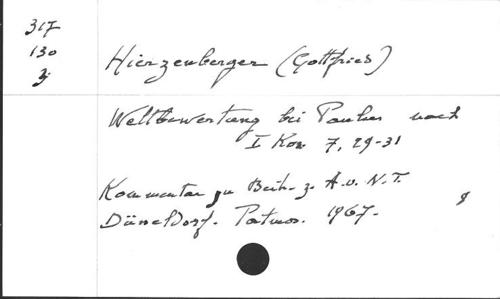 317
130
3
Hierzenberger (Gottfried)
Weltbewertung bei Paulus nach
I Kor 7, 29-31
Kommentar zu Beitr. z. A.u. N.T.
Düsseldorf. Patmos. 1967.